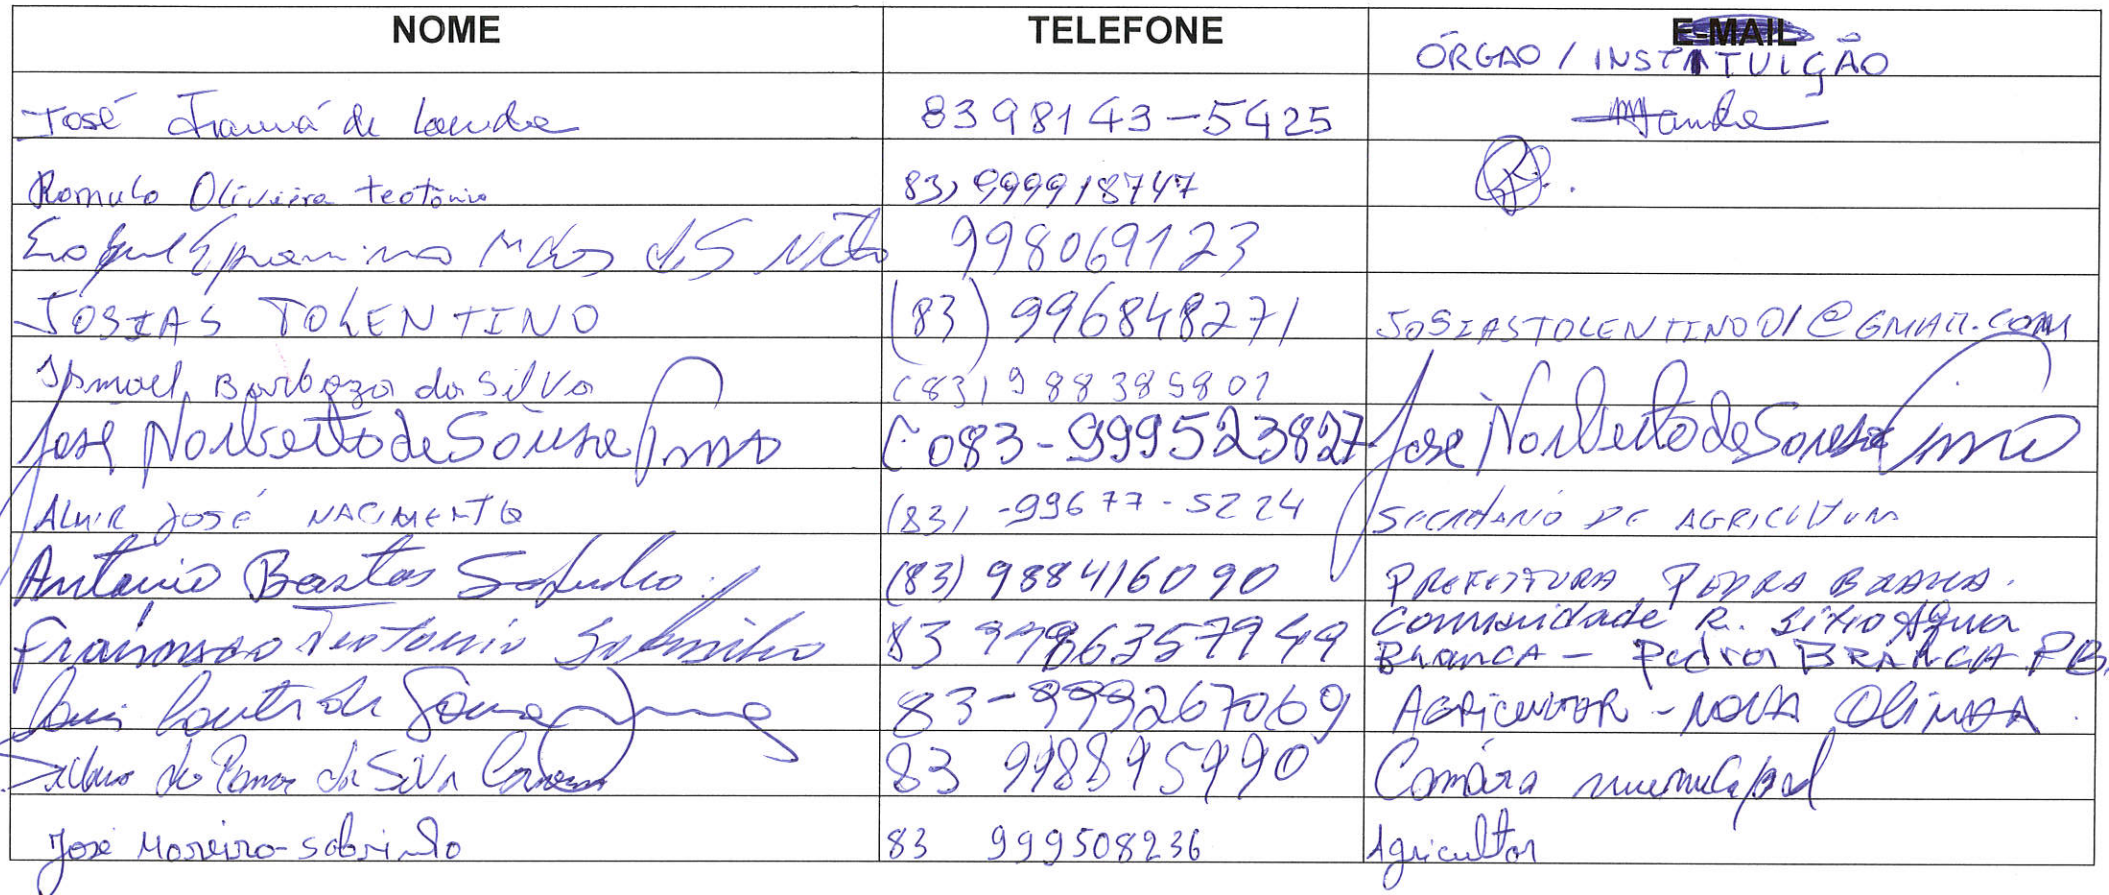 NOME TELEFONE E-MAIL
ÓRGÃO / INSTITUIÇÃO
José de 83 98143-5425
Romulo Oliveira teotonio 83) 999918747
Neto 998069123
JOSIAS TOLENTINO (83) 996848271 JOSIASTOLENTINO01@GMAIL.COM
Ismael Barboza da Silva (83) 988385801
José Norberto de Sousa Primo (083-999523827 José Norberto de Sousa Primo
ALMIR JOSÉ NACIMENTO (83) -99677-5224 SECRETARIO DE AGRICULTURA
Antonio Bastos Sobrinho (83) 988416090 PREFEITURA PEDRA BRANCA.
Francisco Teotonio Sobrinho 83 9986357949 Comunidade R. Sitio Agua
BRANCA - Pedra BRANCA PB.
de Sousa 83-999267069 AGRICULTOR - NOVA OLINDA.
da Silva 83 998895990 Camara municipal
José Moreira Sobrinho 83 999508236 Agricultor